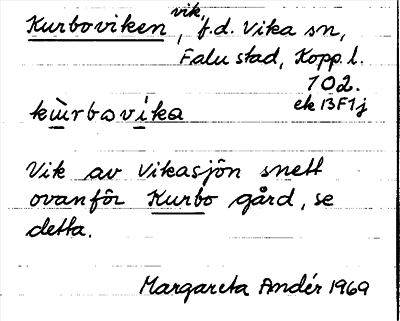 Kurboviken, vik, f.d. Vika sn,
Falu stad, Kopp. l.
102.
ek 13F1j
kùrbovíka
Vik av Vikasjön snett
ovanför Kurbo gård, se
detta.
Margareta Andér 1969